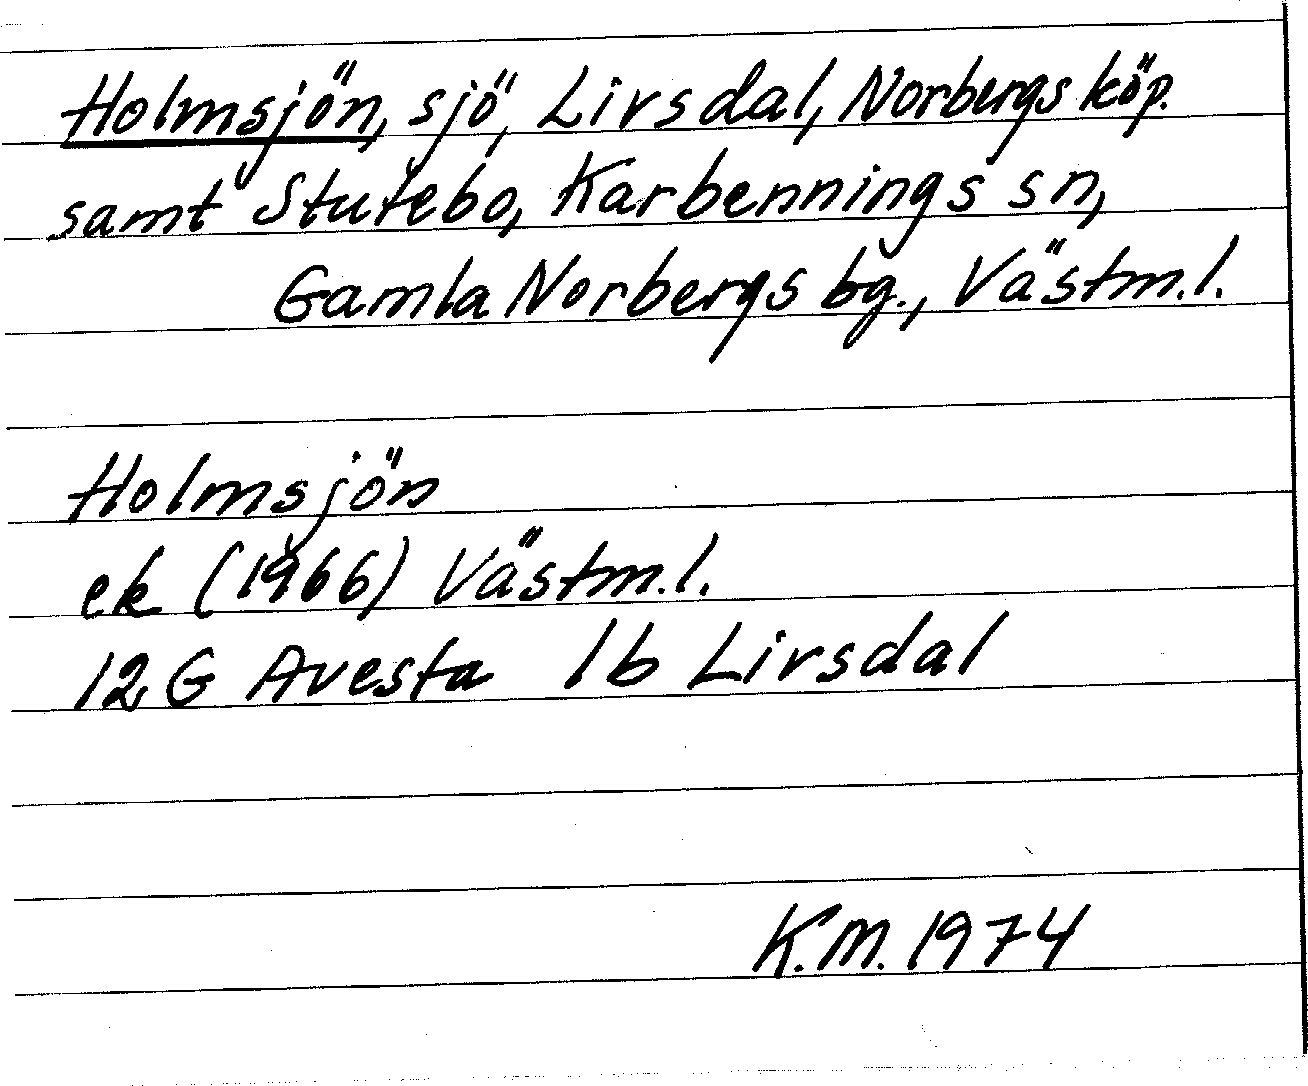 Holmsjön, sjö, Livsdal, Norbergs köp.
samt Stutebo, Karbennings sn,
Gamla Norbergs bg., Västm.l.
Holmsjön
ek (1966) Västm.l.
12 G Avesta 1b Livsdal
K.M. 1974